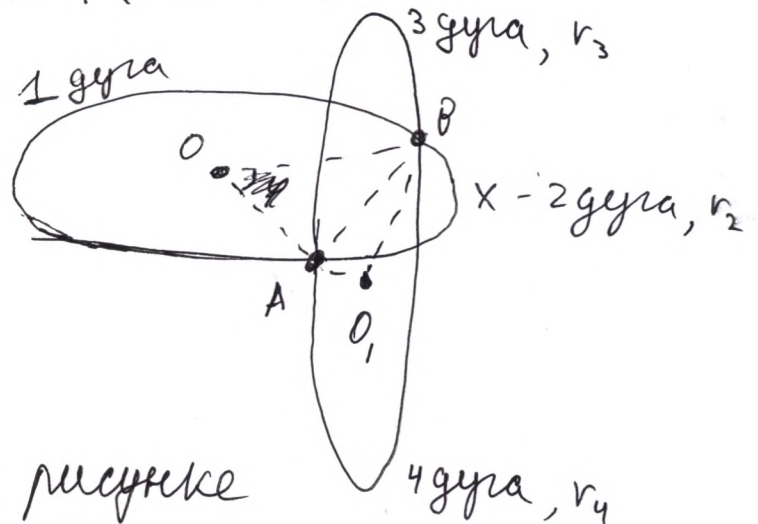 3 дуга, r₃
1 дуга
B
O
x - 2 дуга, r₂
A
O₁
рисунке
4 дуга, r₄